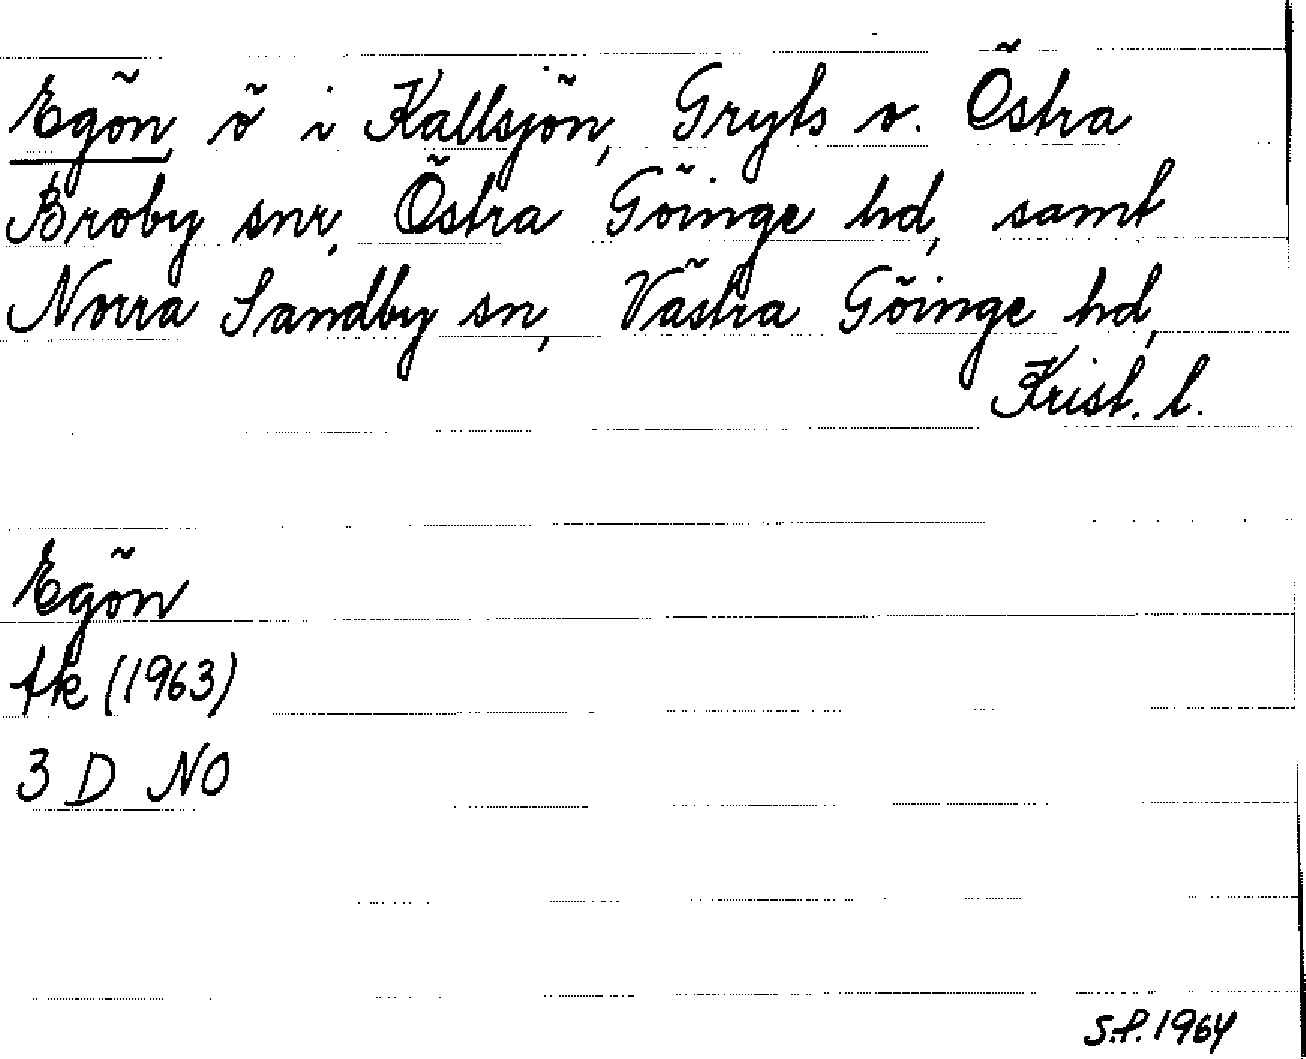 Egön, ö i Kallsjön, Gryts o. Östra
Broby snr, Östra Göinge hd, samt
Norra Sandby sn, Västra Göinge hd,
Krist. l.
Egön
fk (1963)
3 D NO
S.P. 1964